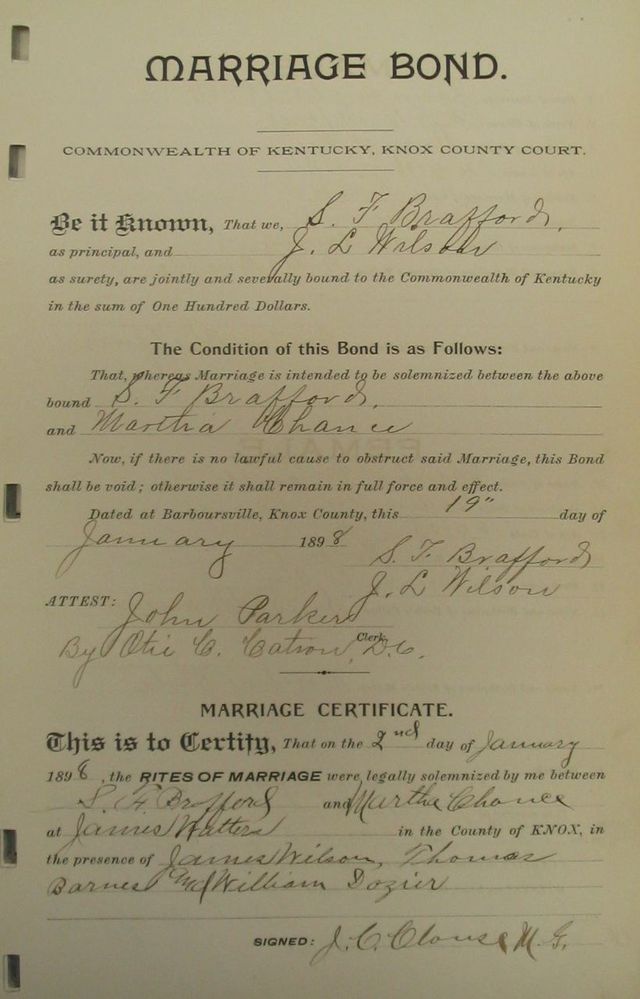 MARRIAGE BOND.
COMMONWEALTH OF KENTUCKY, KNOX COUNTY COURT.
Be it Known, That we, S. F Brafford,
as principal, and J. L Wilson
as surety, are jointly and severally bound to the Commonwealth of Kentucky
in the sum of One Hundred Dollars.
The Condition of this Bond is as Follows:
That, whereas Marriage is intended to be solemnized between the above
bound S. F Brafford,
and Martha Chance
Now, if there is no lawful cause to obstruct said Marriage, this Bond
shall be void; otherwise it shall remain in full force and effect.
Dated at Barboursville, Knox County, this 19" day of
January 1898
S. F. Brafford
J. L Wilson
ATTEST: John Parker
Clerk
By Otie C. Catron, D.C.
MARRIAGE CERTIFICATE.
This is to Certify, That on the 2nd day of January
1898, the RITES OF MARRIAGE were legally solemnized by me between
S. F. Brafford and Martha Chance
at James Watters in the County of KNOX, in
the presence of James Wilson, Thomas
Barnes and William Dozier
SIGNED: J. C. Clouse M. G.